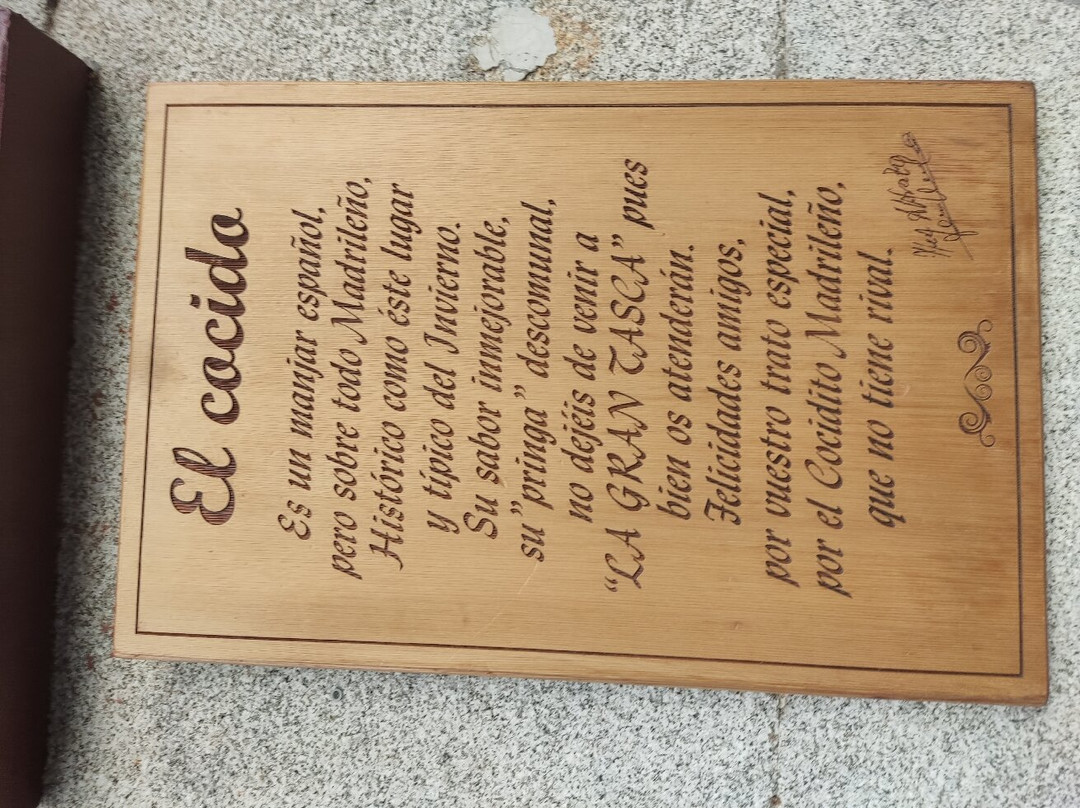 El cocido
Es un manjar español,
pero sobre todo Madrileño,
Histórico como éste lugar
y típico del Invierno.
Su sabor inmejorable,
su "pringa" descomunal,
no dejéis de venir a
"LA GRAN TASCA" pues
bien os atenderán.
Felicidades amigos,
por vuestro trato especial,
por el Cocidito Madrileño,
que no tiene rival.